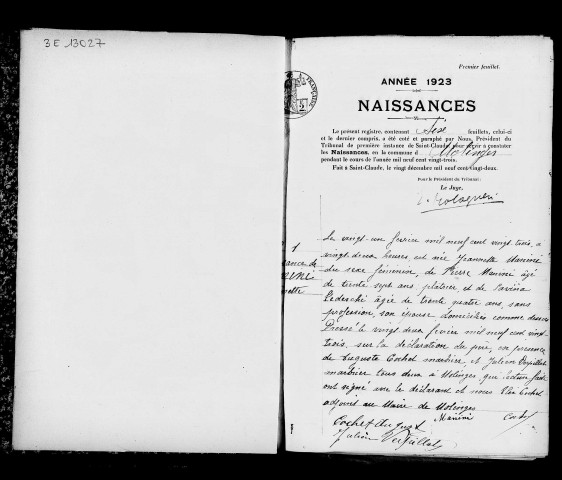 3E 13027
Premier feuillet.
ANNÉE 1923
NAISSANCES
Le présent registre, contenant feuillets, celui-ci
et le dernier compris, a été coté et paraphé par Nous, Président du
Tribunal de première instance de Saint-Claude, pour servir à constater
les Naissances, en la commune d Molinges
pendant le cours de l'année mil neuf cent vingt-trois.
Fait à Saint-Claude, le vingt décembre mil neuf cent vingt-deux.
Pour le Président du Tribunal :
Le Juge,
FRANÇAISE
1
Le vingt-un février mil neuf cent vingt-trois, à
vingt-deux heures, est née Jeannette Manini
du sexe féminin, de Pierre Manini âgé
de trente sept ans, plâtrier, et de
Tedeschi âgée de trente quatre ans, sans
profession, son épouse, domiciliés comme dessus
Dressé le vingt-deux février mil neuf cent vingt
trois, sur la déclaration du père, en présence
de Auguste Cochet marbrier, et Julien
marbrier tous deux à Molinges, qui, lecture faite
ont signé avec le déclarant et nous Cochet
adjoint au Maire de Molinges
Manini
Cochet August
Julien